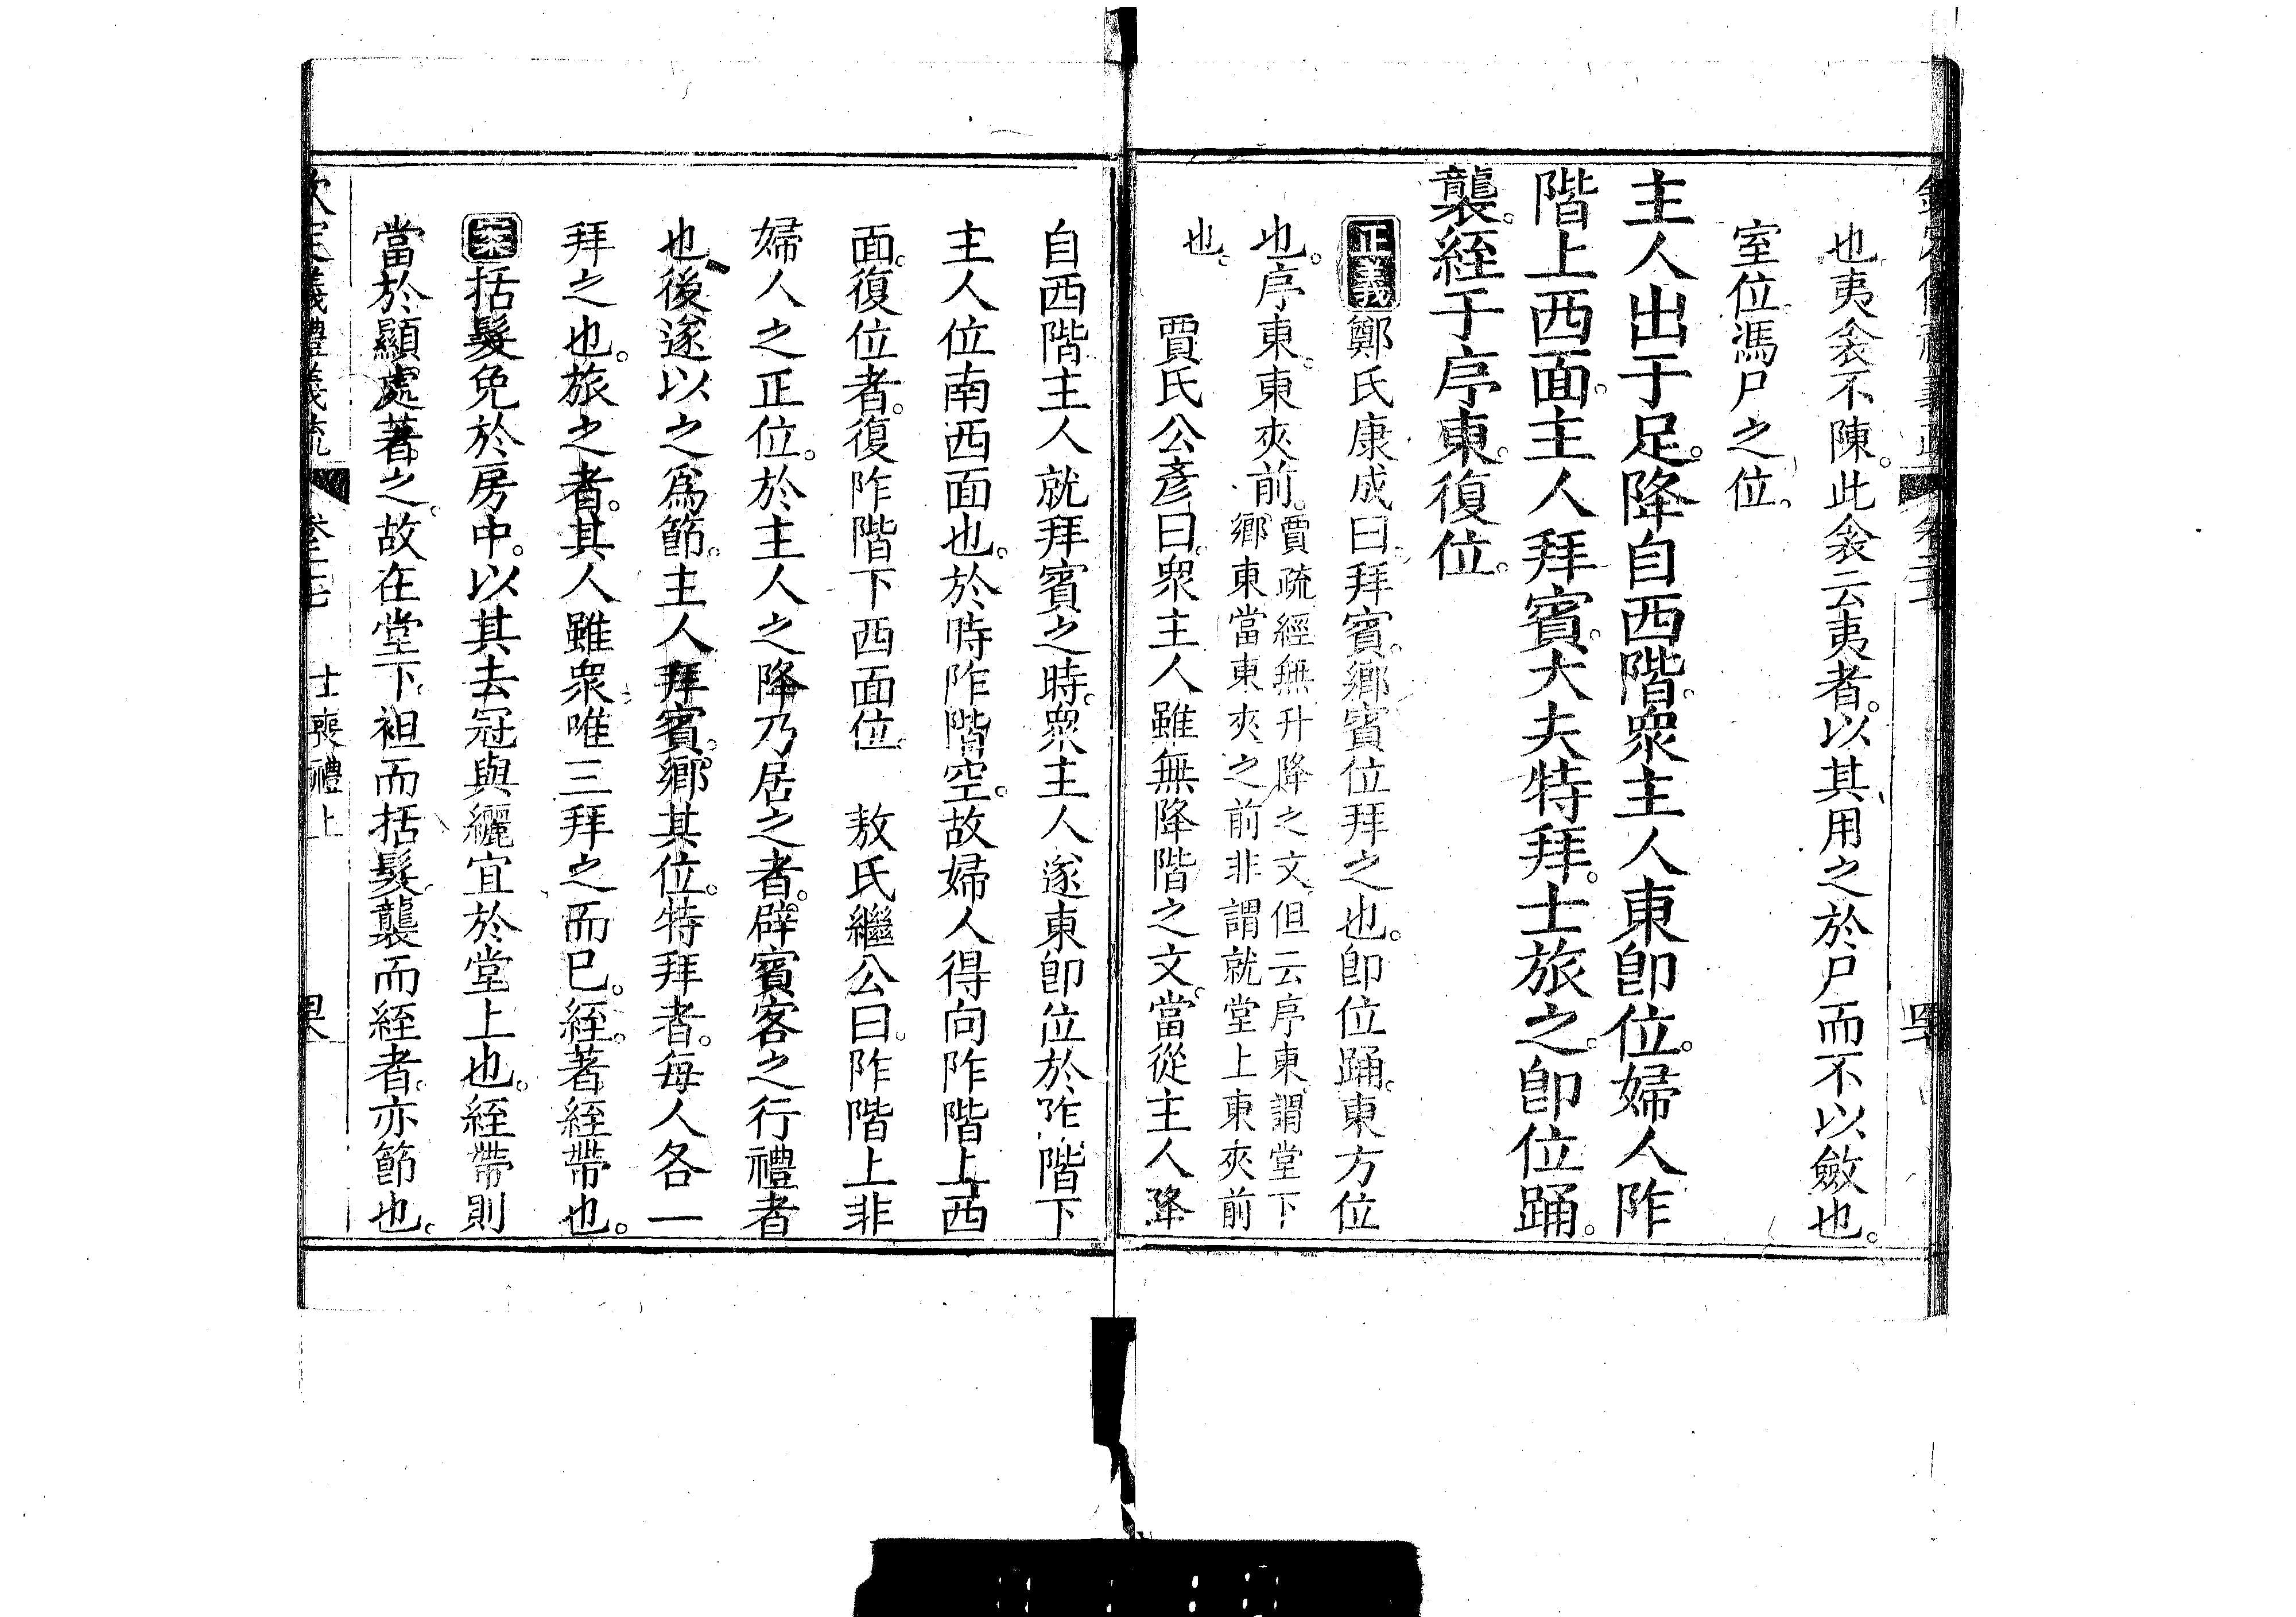 也夷衾不陳。此衾云夷者。以其用之於尸而不以斂也。
室位馮尸之位。
主人出于足。降自西階。衆主人東卽位。婦人阼
階上西面。主人拜賓。大夫特拜。士旅之。卽位踊。
襲。絰于序東。復位。
正義鄭氏康成曰。拜賓。鄉賓位拜之也。卽位踊。東方位
也。序東。東夾前。
賈疏經無升降之文。但云序東。謂堂下
鄉東當東夾之前非謂就堂上東夾前
也。
賈氏公彥曰。衆主人雖無降階之文。當從主人降
自西階主人就拜賓之時。衆主人遂東卽位於阼階下
主人位南西面也。於時阼階空。故婦人得向阼階上西
面。復位者。復阼階下西面位。 敖氏繼公曰。阼階上非
婦人之正位。於主人之降乃居之者。辟賓客之行禮者
也後遂以之爲節。主人拜賓。鄉其位。特拜者。每人各一
拜之也。旅之者。其人雖衆唯三拜之而已。絰。著絰帶也。
案括髮免於房中。以其去冠與纚宜於堂上也。絰帶則
當於顯處著之。故在堂下。袒而括髮。襲而絰者。亦節也。
欽定儀禮義疏 卷二十七 士喪禮上